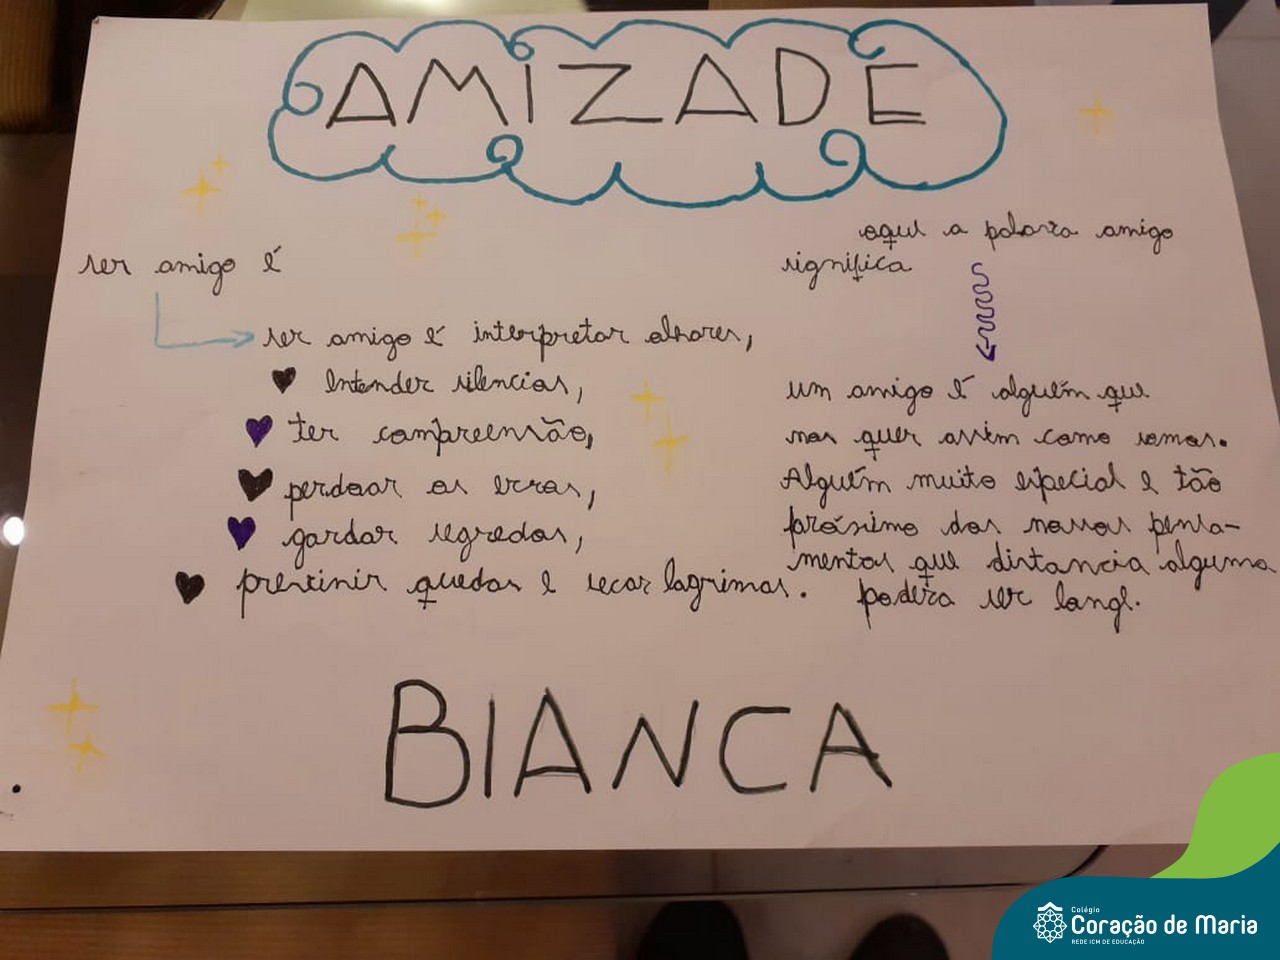 AMIZADE
ser amigo é
ser amigo é interpretar olhares,
Entender silencios,
ter compreensão,
perdoar os erros,
gardar segredos,
previnir quedas e secar lagrimas.
aqui a palavra amigo
significa
um amigo é alguém que
nos quer assim como somos.
Alguém muito especial e tão
próximo dos nossos pensa-
mentos que distancia alguma
podera ser longe.
BIANCA
Colégio
Coração de Maria
REDE ICM DE EDUCAÇÃO